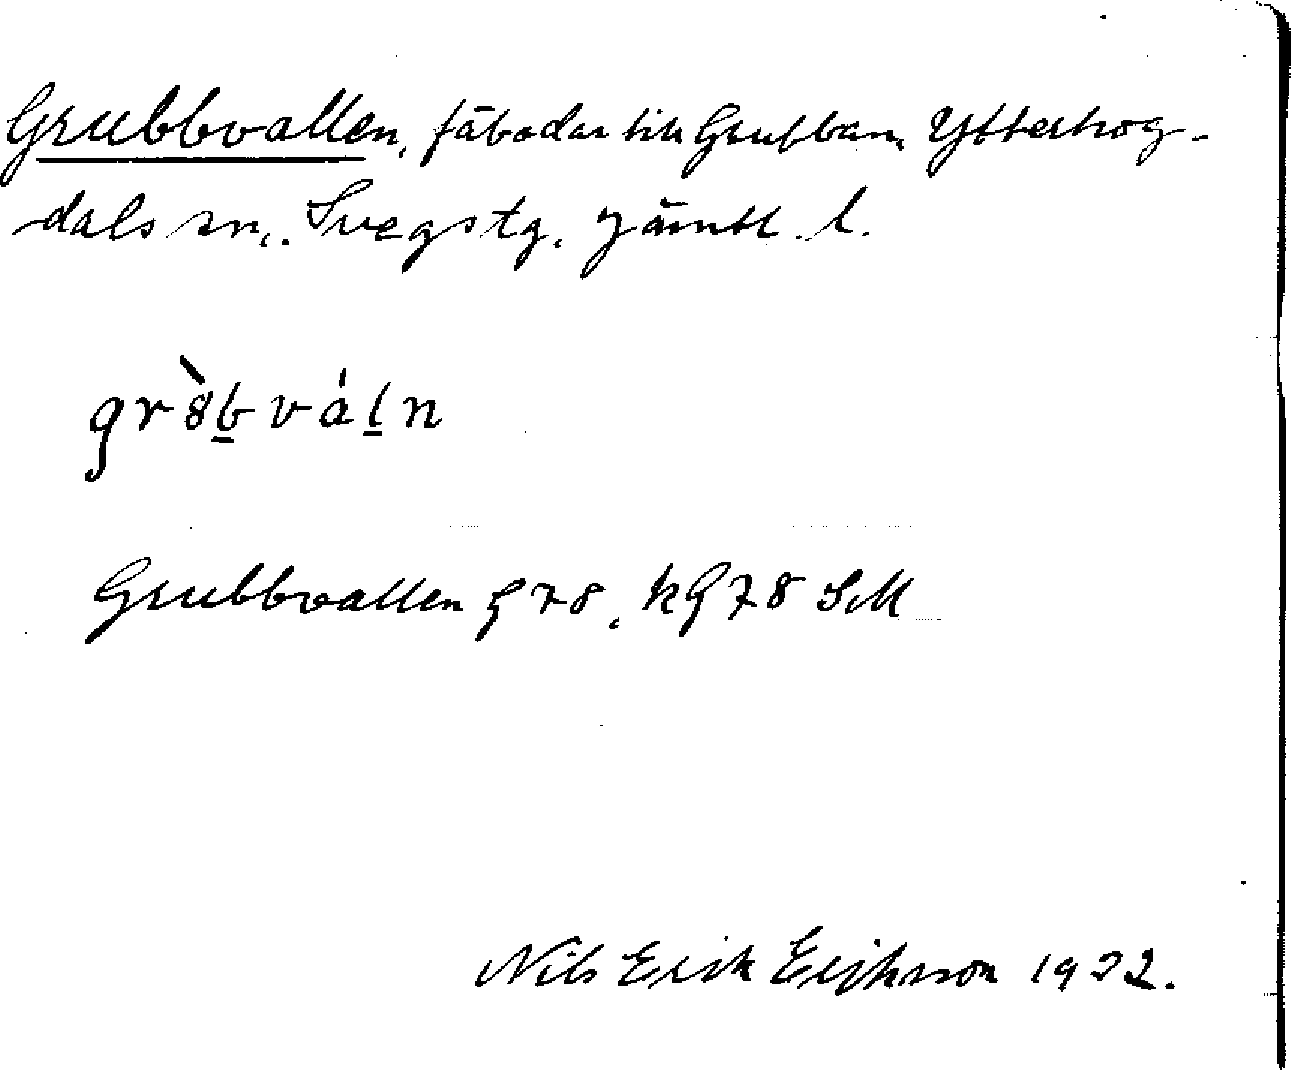 Grubbvallen, fäbodar till Grubban, Ytterhog-
dals sn., Svegs tg, Jämtl. l.
gr8̀b̲vál̲n
Grubbvallen
Nils Erik Erikson 1922.